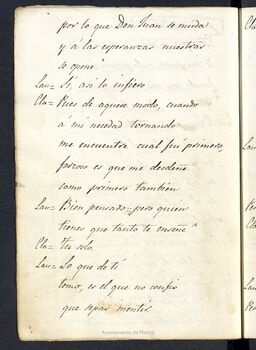 por lo que Don Juan se muda
y á las esperanzas nuestras
se opone.
Lau= Si, asi lo infiero
Cla= Pues de aquese modo, cuando
a mi necedad tornando
me encuentre cual fui primero,
forzoso es que me desdeñe
como primero tambien
Lau= Bien pensado; pero quien
tienes que tanto te enseñe?
Cla= Tu solo.
Lau= Lo que de ti
temo, es el que no confio
que sepas mentir.
Ayuntamiento de Madrid